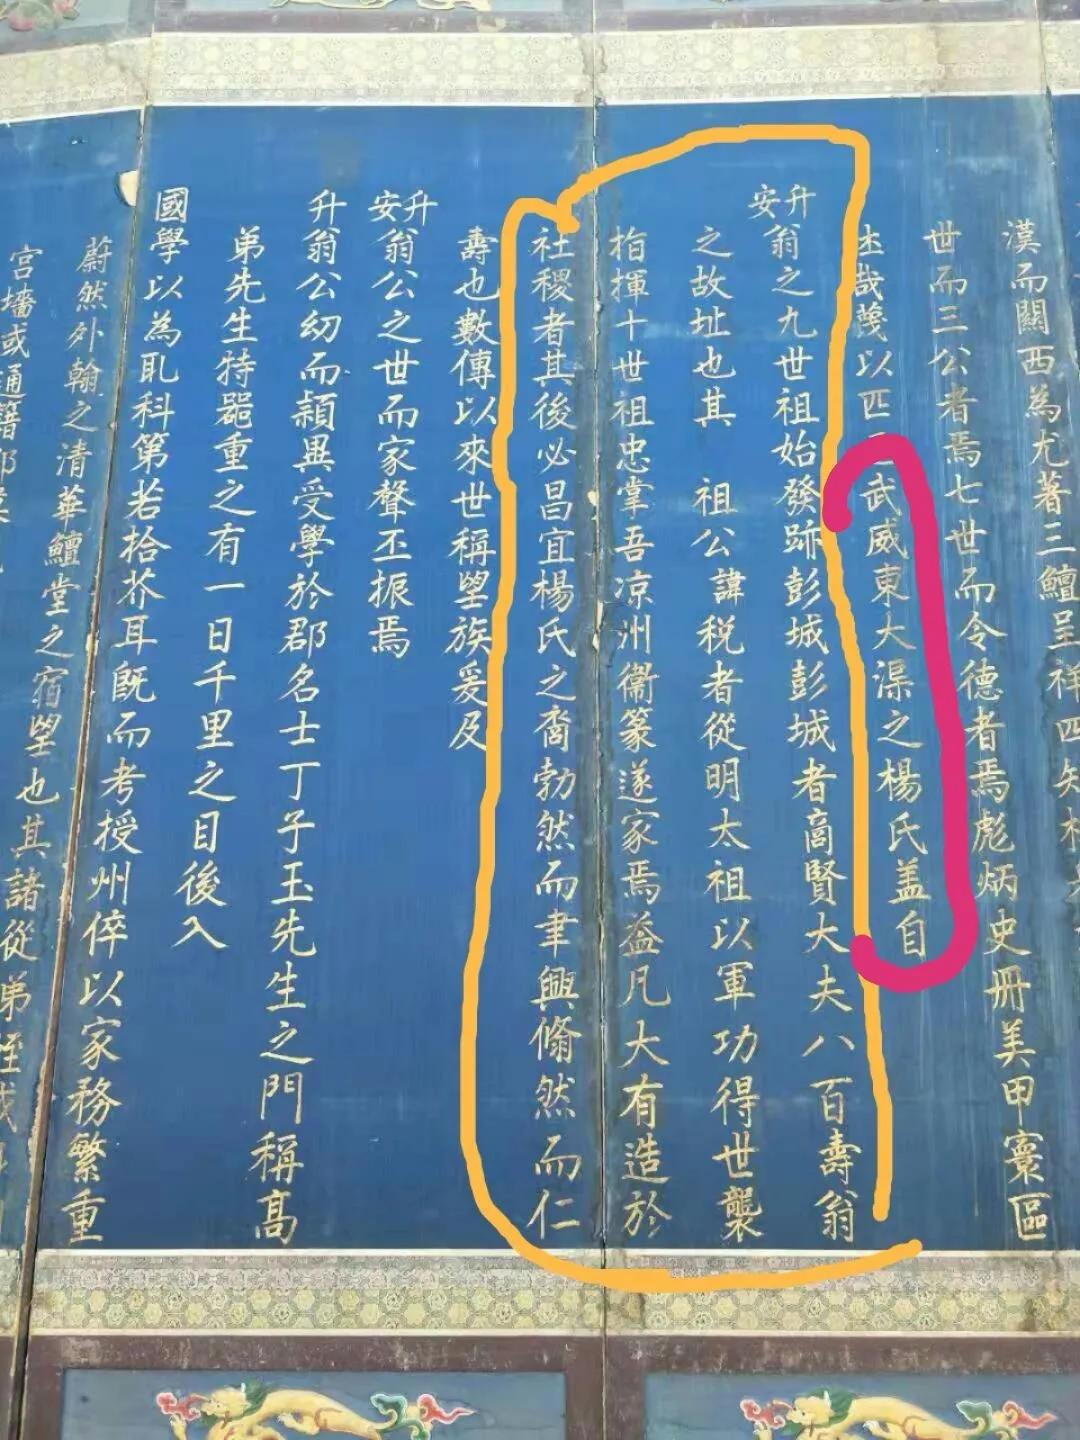 漢而關西為尤著三鱣呈祥四知
世而三公者焉七世而令德者焉彪炳史冊美甲寰區
哉蔑以匹武威東大渠之楊氏盖自
升安翁之九世祖始發跡彭城彭城者商賢大夫八百壽翁
之故址也其 祖公諱税者從明太祖以軍功得世襲
指揮十世祖忠掌吾凉州衞篆遂家焉益凡大有造於
社稷者其後必昌宜楊氏之裔勃然而聿興翛然而仁
壽也數傳以來世稱望族爰及
升安翁公之世而家聲丕振焉
升翁公幼而頴異受學於郡名士丁子玉先生之門稱高
弟先生特器重之有一日千里之目後入
國學以為耴科第若拾芥耳既而考授州倅以家務繁重
蔚然外翰之清華鱣堂之宿望也其諸從弟侄或
宮墻或通籍部